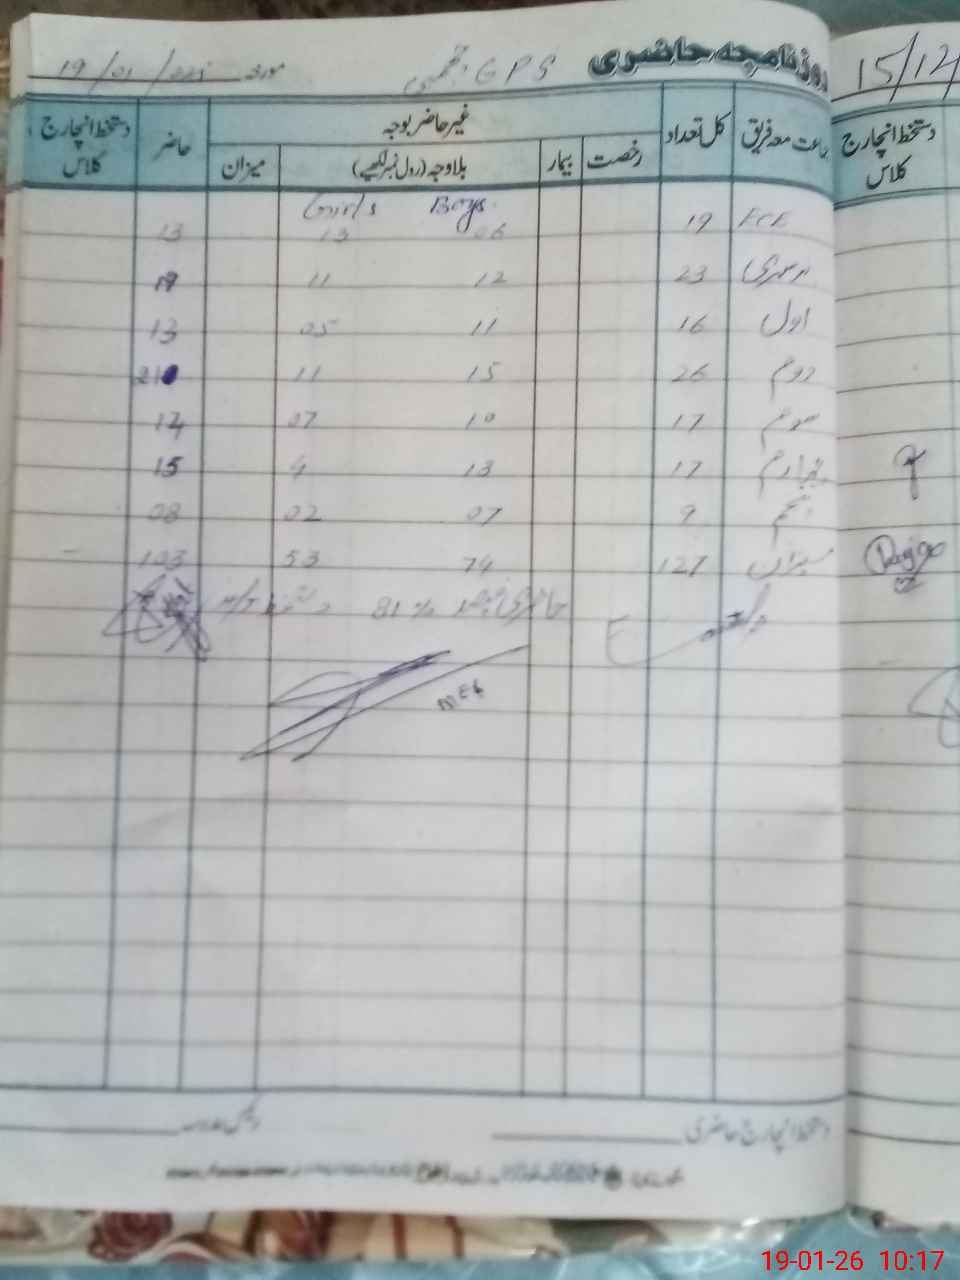 روزنامچہ حاضری GPS مورخہ 19/01/
جماعت معہ فریق کل تعداد غیر حاضر بوجہ حاضر دستخط انچارج کلاس
رخصت بیمار بلاوجہ (رول نمبر لکھیے) میزان
Boys Girls
ECE 19 06 13 13
نرسری 23 12 11
اول 16 11 05 13
دوم 26 15 11 21
سوم 17 10 07 14
چہارم 17 13 4 15
پنجم 9 07 02 08
میزان 127 74 53 103
حاضری 81%
دستخط انچارج حاضری
15/12/
دستخط انچارج
کلاس
19-01-26 10:17